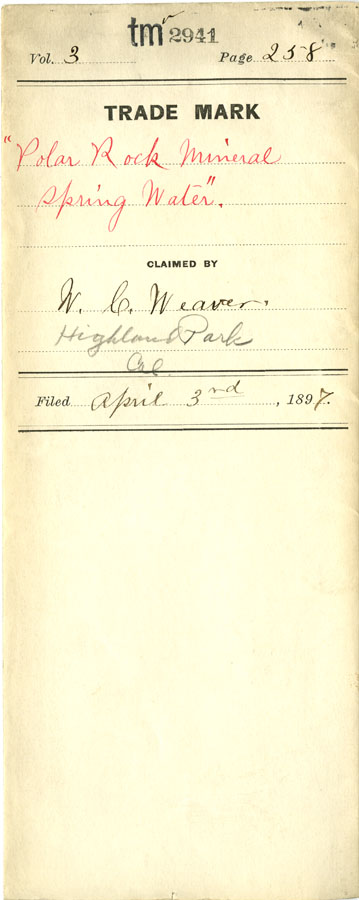 tm 2941
Vol. 3 Page 258
TRADE MARK
"Polar Rock Mineral
Spring Water".
CLAIMED BY
W. C. Weaver.
Highland Park
Cal.
Filed April 3rd, 1897.